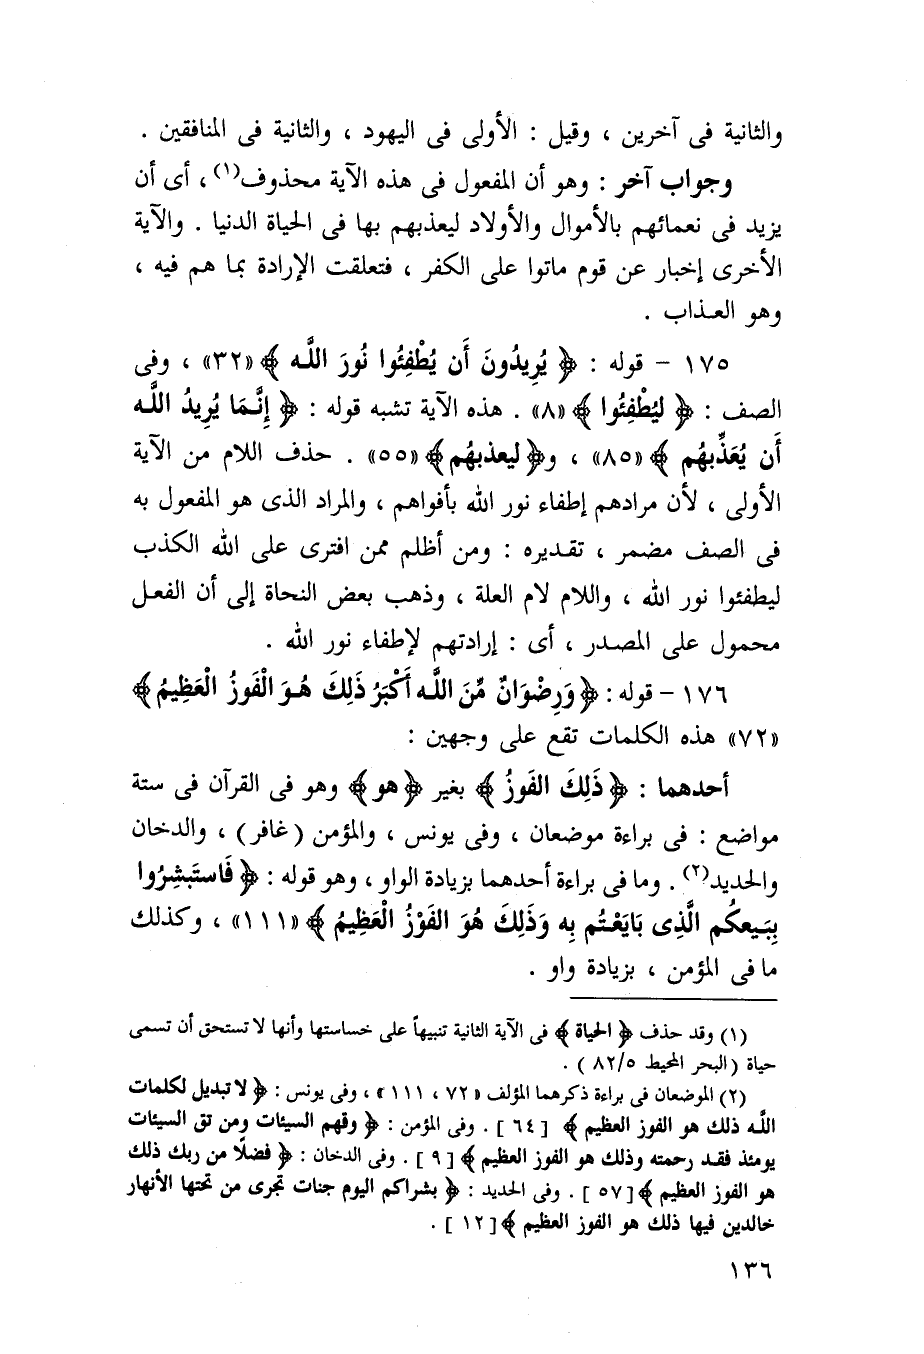 والثانية فى آخرين ، وقيل : الأولى فى اليهود ، والثانية فى المنافقين .
وجواب آخر : وهو أن المفعول فى هذه الآية محذوف(١) ، أى أن
يزيد فى نعمائهم بالأموال والأولاد ليعذبهم بها فى الحياة الدنيا . والآية
الأخرى إخبار عن قوم ماتوا على الكفر ، فتعلقت الإرادة بما هم فيه ،
وهو العذاب .
١٧٥ – قوله : ﴿ يُرِيدُونَ أَن يُطْفِئُوا نُورَ اللَّه ﴾ «٣٢» ، وفى
الصف : ﴿ لِيُطْفِئُوا ﴾ «٨» . هذه الآية تشبه قوله : ﴿ إِنَّمَا يُرِيدُ اللَّه
أَن يُعَذِّبهُم ﴾ «٨٥» ، و﴿ ليعذبهُم ﴾ «٥٥» . حذف اللام من الآية
الأولى ، لأن مرادهم إطفاء نور الله بأفواهم ، والمراد الذى هو المفعول به
فى الصف مضمر ، تقديره : ومن أظلم ممن افترى على الله الكذب
ليطفئوا نور الله ، واللام لام العلة ، وذهب بعض النحاة إلى أن الفعل
محمول على المصدر ، أى : إرادتهم لإطفاء نور الله .
١٧٦ – قوله : ﴿ وَرِضْوَانٌ مِّنَ اللَّه أَكْبَرُ ذَلِكَ هُوَ الْفَوزُ الْعَظِيمُ ﴾
«٧٢» هذه الكلمات تقع على وجهين :
أحدهما : ﴿ ذَلِكَ الفَوزُ ﴾ بغير ﴿ هو ﴾ وهو فى القرآن فى ستة
مواضع : فى براءة موضعان ، وفى يونس ، والمؤمن (غافر) ، والدخان
والحديد(٢) . وما فى براءة أحدهما بزيادة الواو ، وهو قوله : ﴿ فَاستَبشِرُوا
بِبَيعكُم الَّذِى بَايَعْتُم بِه وَذَلِكَ هُوَ الفَوْزُ الْعَظِيمُ ﴾ «١١١» ، وكذلك
ما فى المؤمن ، بزيادة واو .
(١) وقد حذف ﴿ الحياة ﴾ فى الآية الثانية تنبيهاً على خساستها وأنها لا تستحق أن تسمى
حياة (البحر المحيط ٨٢/٥ ) .
(٢) الموضعان فى براءة ذكرهما المؤلف « ٧٢ ، ١١١ » ، وفى يونس : ﴿ لا تبديل لكلمات
اللَّه ذلك هو الفوز العظيم ﴾ [ ٦٤ ] . وفى المؤمن : ﴿ وقهم السيئات ومن تق السيئات
يومئذ فقد رحمته وذلك هو الفوز العظيم ﴾ [ ٩ ] . وفى الدخان : ﴿ فضلًا من ربك ذلك
هو الفوز العظيم ﴾ [ ٥٧ ] . وفى الحديد : ﴿ بشراكم اليوم جنات تجرى من تحتها الأنهار
خالدين فيها ذلك هو الفوز العظيم ﴾ [ ١٢ ] .
١٣٦